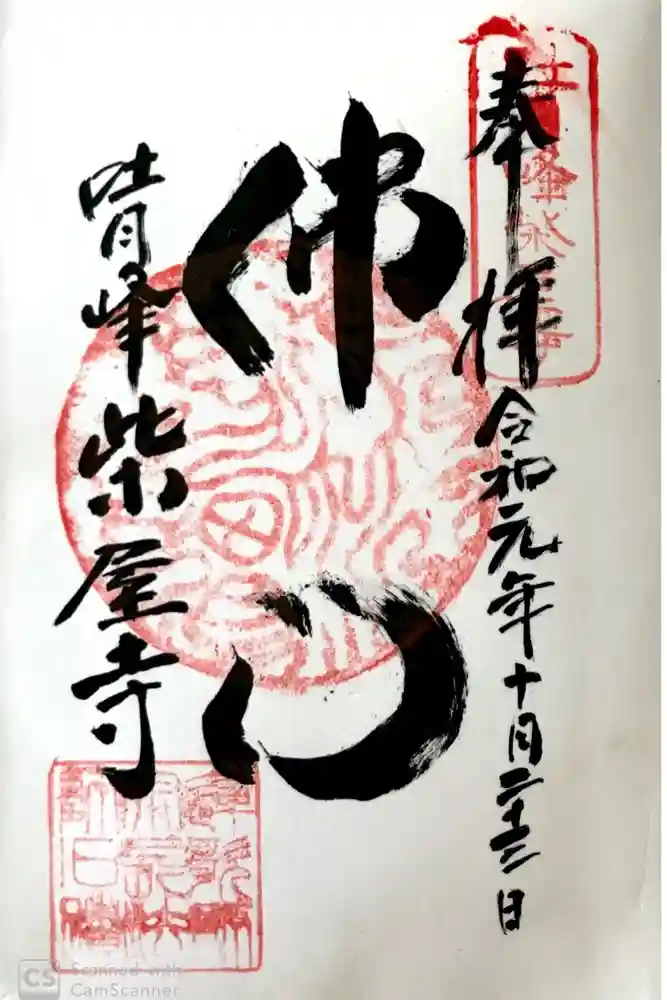 奉拝
令和元年十月二十三日
佛心
吐月峰
柴屋寺
CS Scanned with
CamScanner